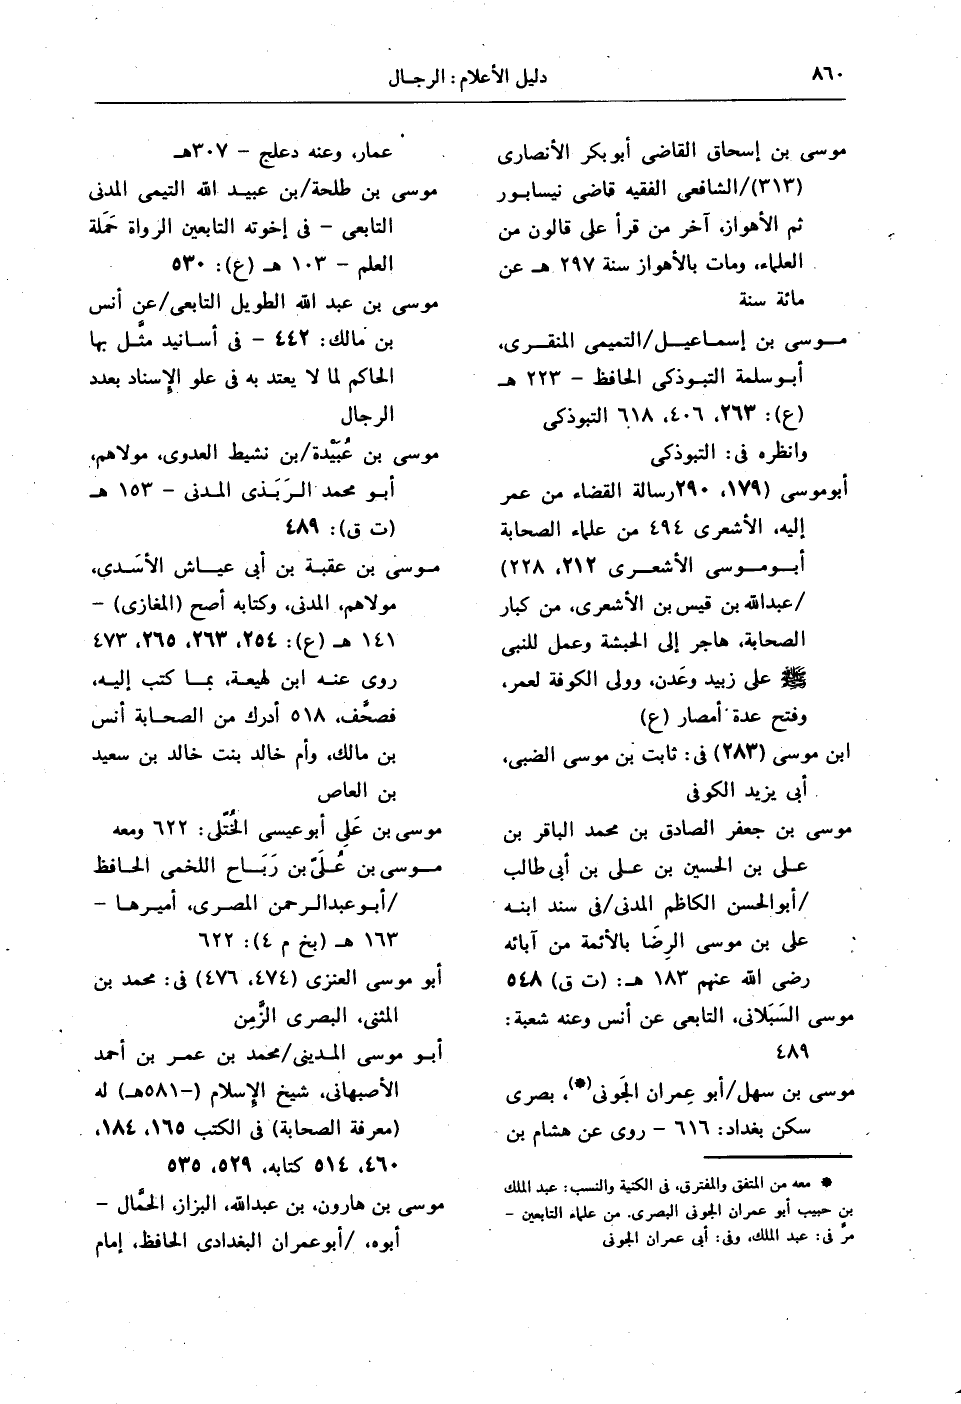 ٨٦٠
دليل الأعلام: الرجال
موسى بن إسحاق القاضى أبوبكر الأنصارى
(٣١٣)/الشافعى الفقيه قاضى نيسابور
ثم الأهواز، آخر من قرأ على قالون من
العلماء، ومات بالأهواز سنة ٢٩٧ هـ عن
مائة سنة
موسى بن إسماعيل/التميمى المنقرى،
أبوسلمة التبوذكى الحافظ – ٢٢٣ هـ
(ع): ٢٦٣، ٤٠٦، ٦١٨ التبوذكى
وانظره فى: التبوذكى
أبوموسى (١٧٩، ٢٩٠رسالة القضاء من عمر
إليه، الأشعرى ٤٩٤ من علماء الصحابة
أبوموسى الأشعرى ٢١٢، ٢٢٨)
/عبدالله بن قيس بن الأشعرى، من كبار
الصحابة، هاجر إلى الحبشة وعمل للنبى
ﷺ على زبيد وعَدن، وولى الكوفة لعمر،
وفتح عدة أمصار (ع)
ابن موسى (٢٨٣) فى: ثابت بن موسى الضبى،
أبى يزيد الكوفى
موسى بن جعفر الصادق بن محمد الباقر بن
على بن الحسين بن على بن أبى طالب
/أبوالحسن الكاظم المدنى/فى سند ابنه
على بن موسى الرِضَا بالأئمة من آبائه
رضى الله عنهم ١٨٣ هـ: (ت ق) ٥٤٨
موسى السَبَلانى، التابعى عن أنس وعنه شعبة:
٤٨٩
موسى بن سهل/أبو عِمران الجَونى(*)، بصرى
سكن بغداد: ٦١٦ – روى عن هشام بن
* معه من المتفق والمفترق، فى الكنية والنسب: عبد الملك
بن حبيب أبو عمران الجونى البصرى. من علماء التابعين –
مرَّ فى: عبد الملك، وفى: أبى عمران الجونى
عمار، وعنه دعلج – ٣٠٧هـ
موسى بن طلحة/بن عبيد الله التيمى المدنى
التابعى – فى إخوته التابعين الرواة حَمَلة
العلم – ١٠٣ هـ (ع): ٥٣٠
موسى بن عبد الله الطويل التابعى/عن أنس
بن مالك: ٤٤٢ – فى أسانيد مثَّل بها
الحاكم لما لا يعتد به فى علو الإسناد بعدد
الرجال
موسى بن عُبَيْدة/بن نشيط العدوى، مولاهم،
أبو محمد الرَبَذى المدنى – ١٥٣ هـ
(ت ق): ٤٨٩
موسى بن عقبة بن أبى عياش الأسَدى،
مولاهم، المدنى، وكتابه أصح (المغازى) –
١٤١ هـ (ع): ٢٥٤، ٢٦٣، ٢٦٥، ٤٧٣
روى عنه ابن لهيعة، بما كتب إليه،
فصحَّف، ٥١٨ أدرك من الصحابة أنس
بن مالك، وأم خالد بنت خالد بن سعيد
بن العاص
موسى بن عَلِى أبوعيسى الخُتَّلى: ٦٢٢ ومعه
موسى بن عُلَىّ بن رَبَاح اللخمى الحافظ
/أبوعبدالرحمن المصرى، أميرها –
١٦٣ هـ (بخ م ٤): ٦٢٢
أبو موسى العنزى (٤٧٤، ٤٧٦) فى: محمد بن
المثنى، البصرى الزَّمِن
أبو موسى المدينى/محمد بن عمر بن أحمد
الأصبهانى، شيخ الإسلام (–٥٨١هـ) له
(معرفة الصحابة) فى الكتب ١٦٥، ١٨٤،
٤٦٠، ٥١٤ كتابه، ٥٢٩، ٥٣٥
موسى بن هارون، بن عبدالله، البزاز، الحَمَّال –
أبوه، /أبوعمران البغدادى الحافظ، إمام